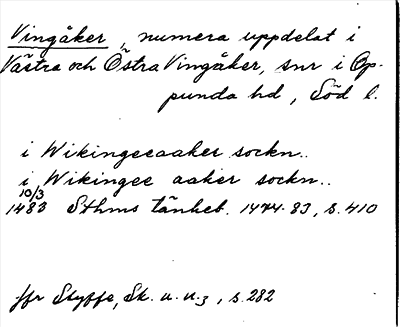 Vingåker, numera uppdelat i
Västra och Östra Vingåker, snr i Op-
punda hd, Söd l.
i Wikingeeaaker sockn..
i Wikingee aaker sockn..
10/3
1483 Sthms tänkeb. 1474-83, s. 410
jfr Styffe, Sk. u. u.3, s. 282